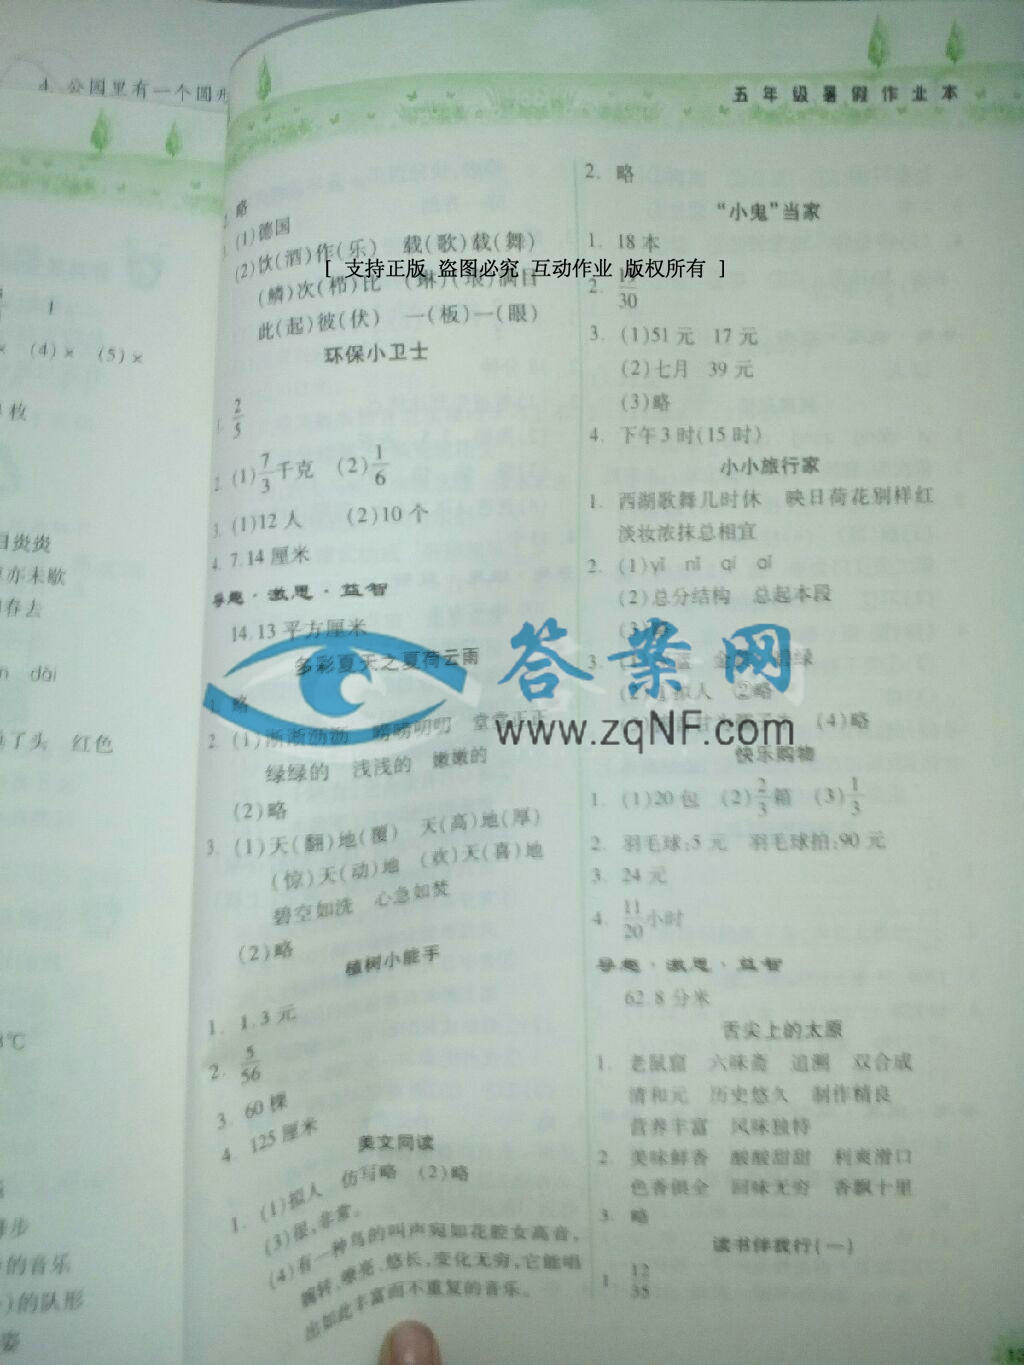 4. 公园里有一个圆形
1
(4)× (5)×
枚
炎炎
亦未歇
春去
dài
了头 红色
℃
步
的音乐
)的队形
姿
五年级暑假作业本
略
(1)德国
(2)饮(酒)作(乐) 载(歌)载(舞)
[ 支持正版 盗图必究 互动作业 版权所有 ]
(鳞)次(栉)比 (琳)(琅)满目
此(起)彼(伏) 一(板)一(眼)
环保小卫士
1. 2/5
2. (1)7/3千克 (2)1/6
3. (1)12人 (2)10个
4. 7.14厘米
导趣·激思·益智
14.13平方厘米
多彩夏天之夏荷云雨
1. 略
2. (1)淅淅沥沥 唠唠叨叨 堂堂正正
绿绿的 浅浅的 嫩嫩的
(2)略
3. (1)天(翻)地(覆) 天(高)地(厚)
(惊)天(动)地 (欢)天(喜)地
碧空如洗 心急如焚
(2)略
植树小能手
1. 1.3元
2. 5/56
3. 60棵
4. 125厘米
美文同读
1. (1)拟人 仿写略 (2)略
(3)很,非常。
(4)有一种鸟的叫声宛如花腔女高音,
婉转、嘹亮、悠长,变化无穷,它能唱
出如此丰富而不重复的音乐。
2. 略
“小鬼”当家
1. 18本
2. 19/30
3. (1)51元 17元
(2)七月 39元
(3)略
4. 下午3时(15时)
小小旅行家
1. 西湖歌舞几时休 映日荷花别样红
淡妆浓抹总相宜
2. (1)yǐ nǐ qí qī
(2)总分结构 总起本段
(3)
3. 蓝 金 绿
(2)①拟人 ②略
(4)略
答案网
www.zqNF.com
快乐购物
1. (1)20包 (2)2/3箱 (3)1/3
2. 羽毛球:5元 羽毛球拍:90元
3. 24元
4. 11/20小时
导趣·激思·益智
62.8分米
舌尖上的太原
1. 老鼠窟 六味斋 追溯 双合成
清和元 历史悠久 制作精良
营养丰富 风味独特
2. 美味鲜香 酸酸甜甜 利爽滑口
色香俱全 回味无穷 香飘十里
3. 略
读书伴我行(一)
1. 12/35